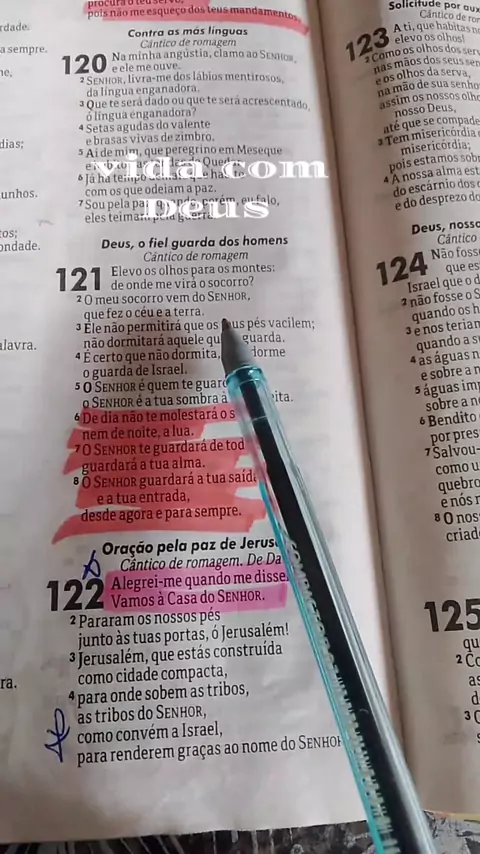 procura o teu servo,
pois não me esqueço dos teus mandamentos.
Contra as más línguas
Cântico de romagem
120 Na minha angústia, clamo ao SENHOR,
e ele me ouve.
2 SENHOR, livra-me dos lábios mentirosos,
da língua enganadora.
3 Que te será dado ou que te será acrescentado,
ó língua enganadora?
4 Setas agudas do valente
e brasas vivas de zimbro.
5 Ai de mim, que peregrino em Meseque
vida com
6 Já há
com os que odeiam a paz.
Deus
7 Sou pela paz falo,
eles teimam pela guerra.
Deus, o fiel guarda dos homens
Cântico de romagem
121 Elevo os olhos para os montes:
de onde me virá o socorro?
2 O meu socorro vem do SENHOR,
que fez o céu e a terra.
3 Ele não permitirá que os pés vacilem;
não dormitará aquele guarda.
4 É certo que não dormita, dorme
o guarda de Israel.
5 O SENHOR é quem te
o SENHOR é a tua sombra à
6 De dia não te molestará o
nem de noite, a lua.
7 O SENHOR te guardará de
guardará a tua alma.
8 O SENHOR guardará a tua
e a tua entrada,
desde agora e para sempre.
Oração pela paz de
Cântico de romagem. De
122 Alegrei-me quando me
Vamos à Casa do SENHOR.
2 Pararam os nossos pés
junto às tuas portas, ó Jerusalém!
3 Jerusalém, que estás construída
como cidade compacta,
4 para onde sobem as tribos,
as tribos do SENHOR,
como convém a Israel,
para renderem graças ao nome do SENHOR
sempre.
dias;
unhos.
ondade.
alavra.
ra.
Solicitude por
Cântico de
123 A ti, que habitas
elevo os olhos!
2 Como os olhos dos
nas mãos dos seus
e os olhos da serva,
na mão de sua
assim os nossos
nosso Deus,
até que se
3 Tem misericórdia
misericórdia;
pois estamos
4 A nossa alma
do escárnio dos
e do desprezo
Deus,
Cântico
124 Não
que
Israel que o
2 não fosse o
quando os
3 e nos
quando a
4 as águas
e sobre a
5 águas
sobre a
6 Bendito
por
7
como
e nós
8 O
125
2
3